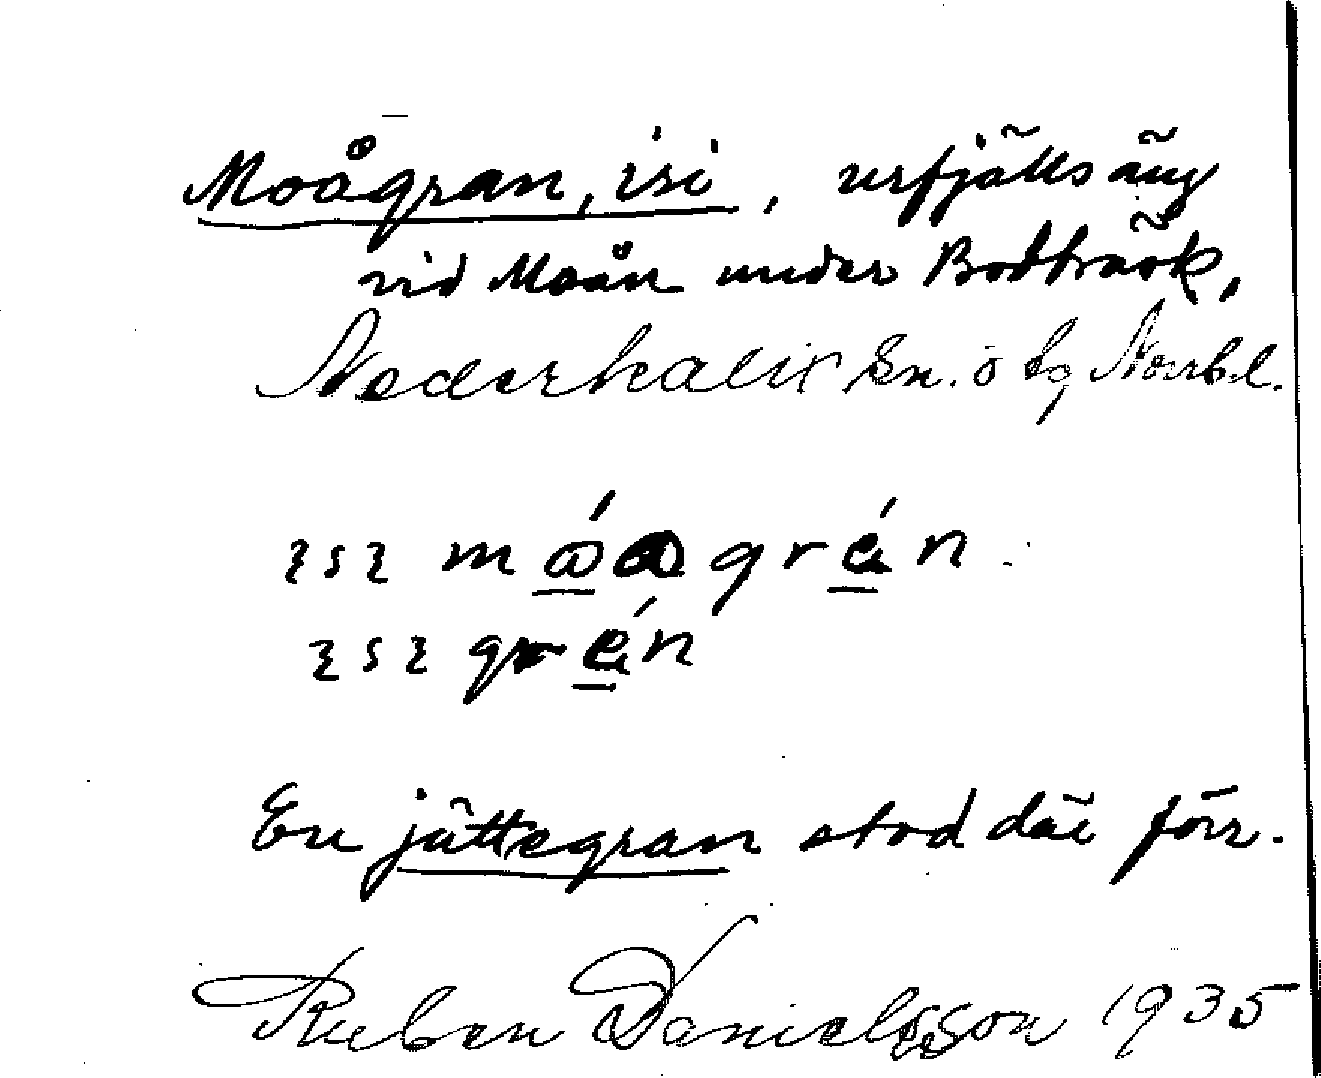 Moågran, isi, urfjällsäng
vid Moån under Bodträsk,
Nederkalix sn. o tg Norrb.l.
ısı móagrán.
ısı grán
En jättegran stod där förr.
Ruben Danielsson 1935